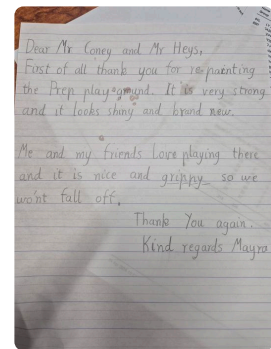 Dear Mr Coney and Mr Heys,
First of all thank you for repainting
the Prep playground. It is very strong
and it looks shiny and brand new.
Me and my friends Love playing there
and it is nice and grippy so we
won't fall off.
Thank You again.
Kind regards Mayra